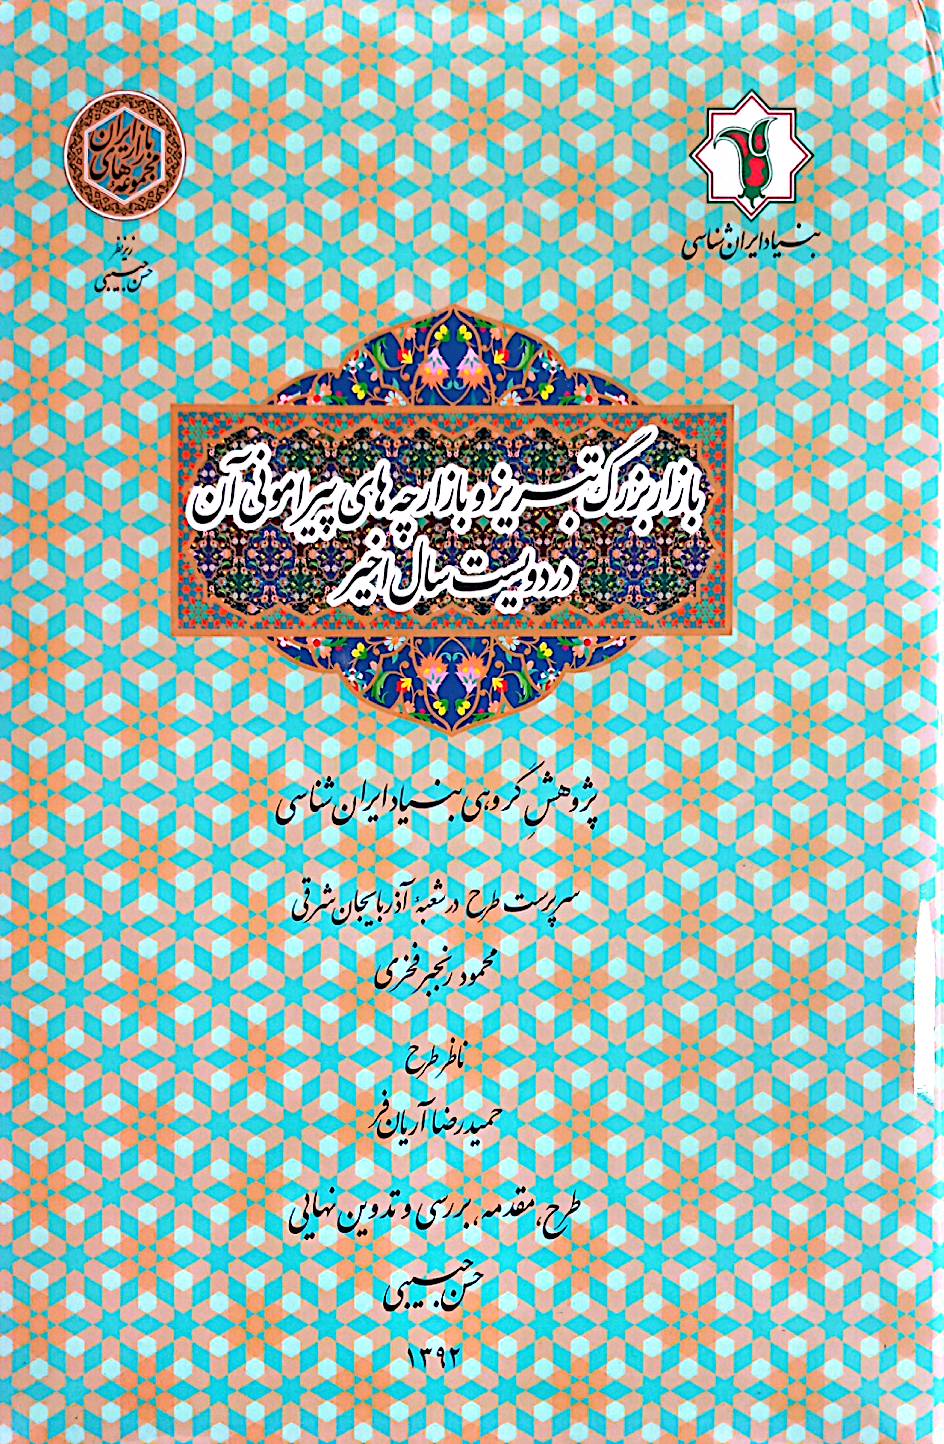 بنیاد ایران‌شناسی
مجموعه‌های
بازار ایران
زیر نظر
حسن حبیبی
بازار بزرگ تبریز و بازارچه‌های پیرامونی آن
در دویست سال اخیر
پژوهشِ گروهی بنیاد ایران‌شناسی
سرپرست طرح در شعبهٔ آذربایجان شرقی
محمود رنجبر فخری
ناظر طرح
حمیدرضا آریان‌فر
طرح، مقدمه، بررسی و تدوین نهایی
حسن حبیبی
۱۳۹۲